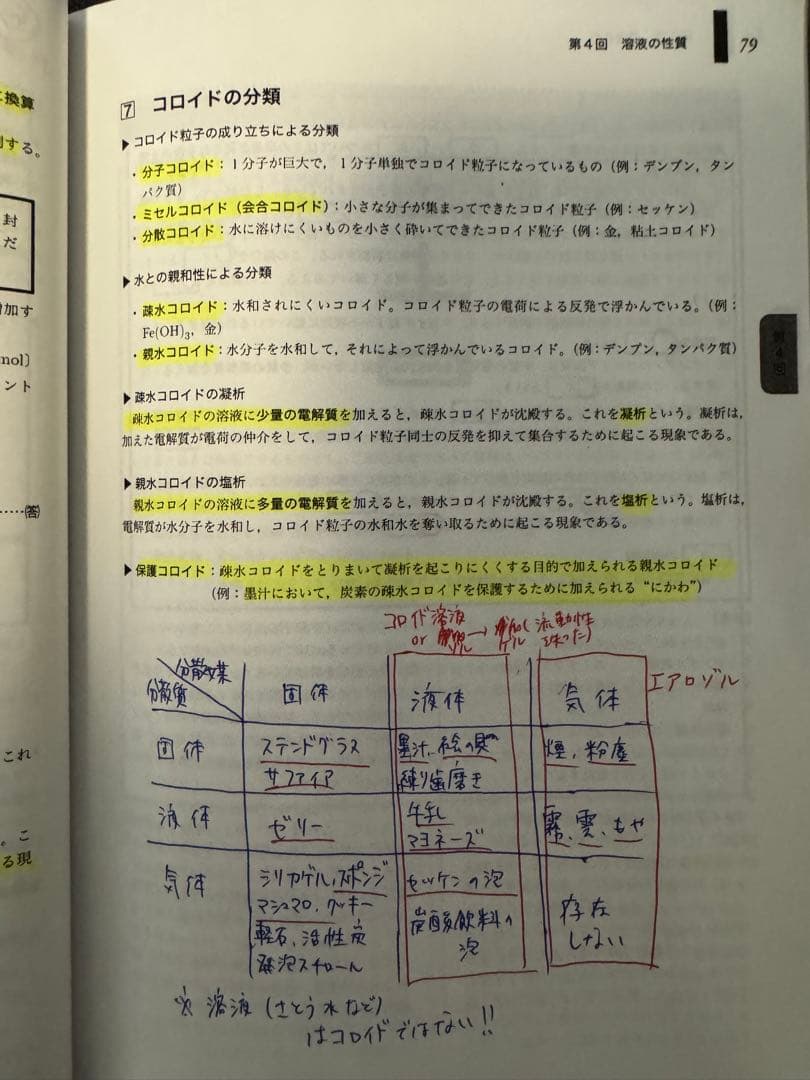 第4回 溶液の性質 79
換算
する。
封
だ
加す
mol〕
ント
……(答)
これ
。こ
る現
第4回
7 コロイドの分類
▶コロイド粒子の成り立ちによる分類
・分子コロイド：1分子が巨大で，1分子単独でコロイド粒子になっているもの（例：デンプン，タン
パク質）
・ミセルコロイド（会合コロイド）：小さな分子が集まってできたコロイド粒子（例：セッケン）
・分散コロイド：水に溶けにくいものを小さく砕いてできたコロイド粒子（例：金，粘土コロイド）
▶水との親和性による分類
・疎水コロイド：水和されにくいコロイド。コロイド粒子の電荷による反発で浮かんでいる。（例：
Fe(OH)₃，金）
・親水コロイド：水分子を水和して，それによって浮かんでいるコロイド。（例：デンプン，タンパク質）
▶疎水コロイドの凝析
疎水コロイドの溶液に少量の電解質を加えると，疎水コロイドが沈殿する。これを凝析という。凝析は，
加えた電解質が電荷の仲介をして，コロイド粒子同士の反発を抑えて集合するために起こる現象である。
▶親水コロイドの塩析
親水コロイドの溶液に多量の電解質を加えると，親水コロイドが沈殿する。これを塩析という。塩析は，
電解質が水分子を水和し，コロイド粒子の水和水を奪い取るために起こる現象である。
▶保護コロイド：疎水コロイドをとりまいて凝析を起こりにくくする目的で加えられる親水コロイド
（例：墨汁において，炭素の疎水コロイドを保護するために加えられる“にかわ”）
コロイド溶液
or ゾル → ゲル
流動性
エアロゾル
分散媒
分散質
固体 液体 気体
固体 ステンドグラス 墨汁、絵の具 煙、粉塵
サファイア 練り歯磨き
液体 ゼリー 牛乳 霧、雲、もや
マヨネーズ
気体 シリカゲル、スポンジ セッケンの泡 存在
マシュマロ、クッキー 炭酸飲料の しない
軽石、活性炭 泡
発泡スチロール
※溶液（さとう水など）
はコロイドではない!!